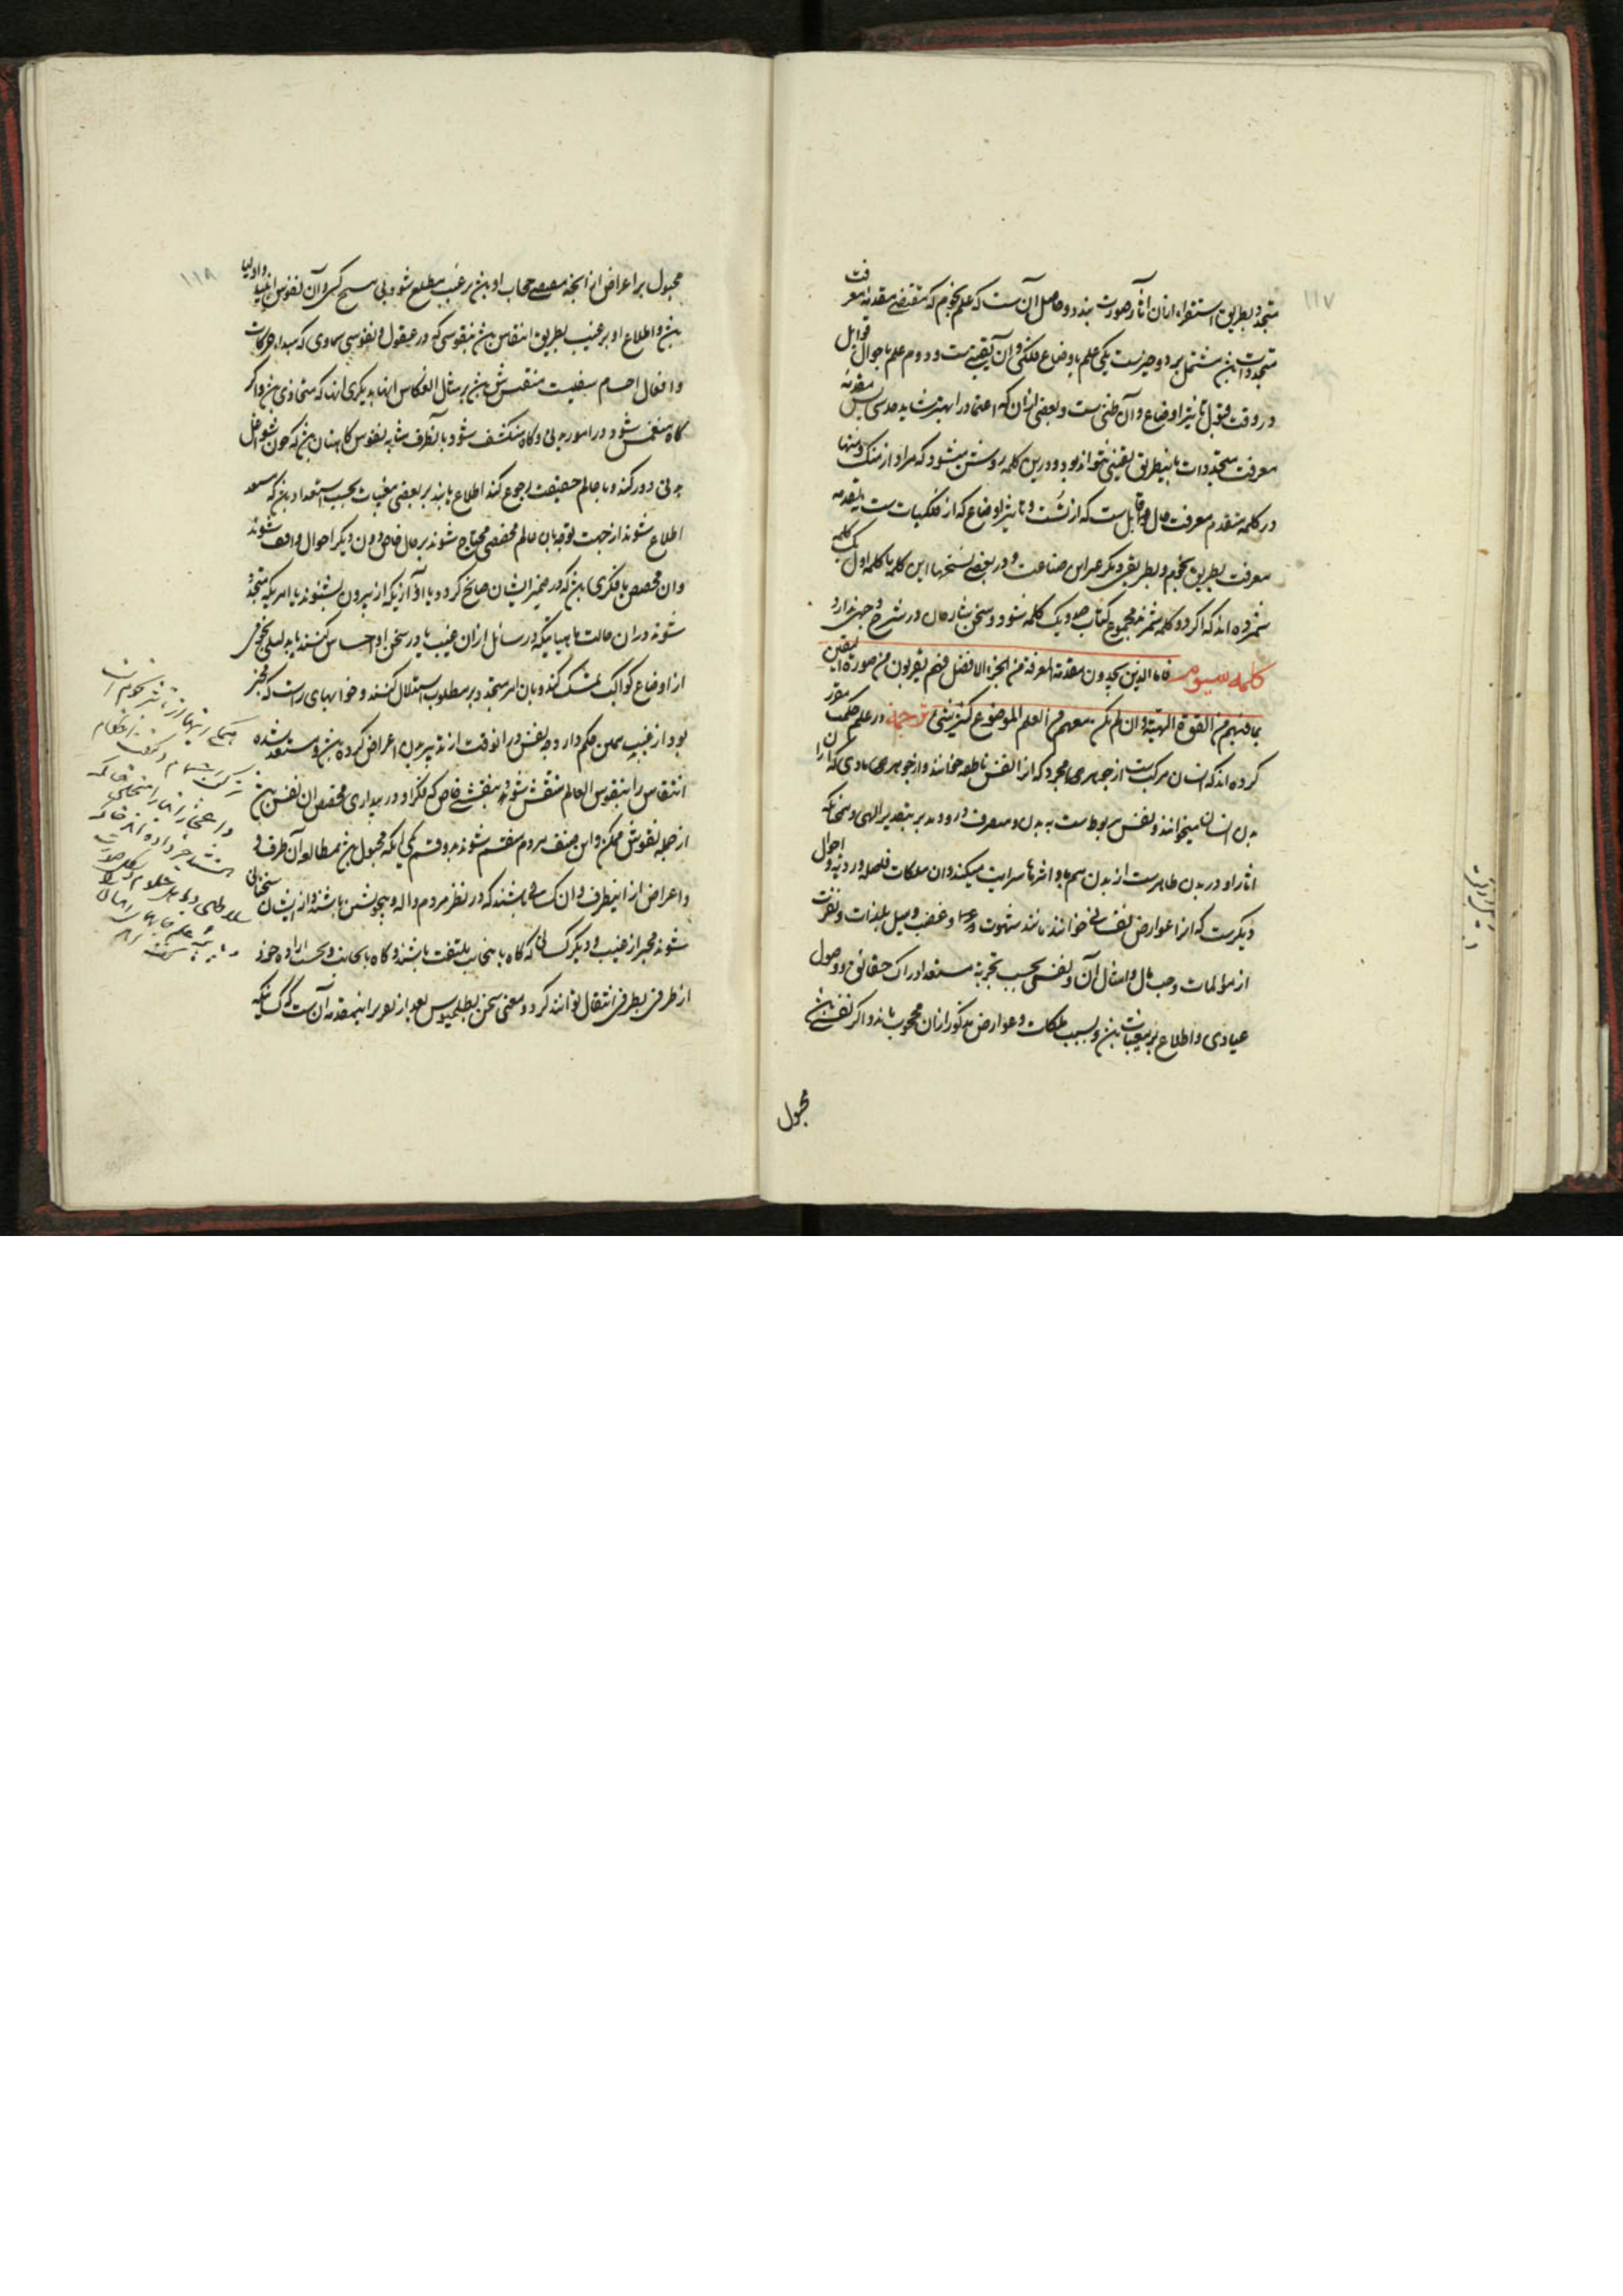 ۱۱۷
متجدد بطریق استقراء ازان آثار صورت بندد و حاصل آن است که علم نجوم که مقتضی تقدمه معرفت
متجددات باشد مشتمل بر دو چیزست یکی علم باوضاع فلکی و آن یقینیست و دوم علم باحوال قوابل
در وقت قبول تاثیر اوضاع و آن ظنی است و بعضی ازان که اعتماد را بهترست باید حدسی پس تقدمه
معرفت متجددات باینطریق یقینی نتواند بود و درین کلمه روشن میشود که مراد از منک و منها
در کلمه متقدم معرفت حال قوابل است که از تست و تاثیر اوضاع که از فلکیات است تقدمه
معرفت بطریق نجوم و بطریقی دیگر غیر این صناعت و در بعضی نسخها این کلمه با کلمه اول یک کلمه
شمرده اند که اگر دو کلمه شمرند مجموع کتاب صد و یک کلمه شود و سخن شارحان در شرح وجهی ندارد
کلمه سیوم فاما الذین یجدون تقدمة المعرفة من الجزء الافضل فهم یقربون من صورة الیقین
بما فیهم من القوة الهیة و ان لم یکن معهم من العلم الموضوع کثیر شیء ترجمه در علم حکمت مقرر
کرده اند که انسان مرکب است از جوهری مجرد که انرا نفس ناطقه خوانند و از جوهری مادی که انرا
بدن انسان میخوانند و نفس مربوطست به بدن و متصرف در وی و مدبر بتقدیر الهی و همچنانکه
اثار او در بدن ظاهرست از بدن هم باو اثرها سرایت میکند و ان ملکات فاضله و ردیه و احوال
دیگرست که انرا عوارض نفسانی خوانند مانند شهوت و غضب و میل بلذات و نفرت
از مولمات و حب مال و امثال آن و نفس بحسب تجرد مستعد ادراک حقائق و وصول
مبادی و اطلاع بر مغیبات باشد و بسبب ملکات و عوارض مذکور ازان محجوب ماند و اگر نفسی باشد
مجبول
۱۱۸
مجبول بر اعراض از انچه مقتضی حجاب او باشد بر غیب مطلع شود بی هیچ کسب و آن نفوس انبیا و اولیا
باشد و اطلاع او بر غیب بطریق انتقاش باشد بنقوشی که در عقول و نفوس سماوی که مبداء حرکات
و افعال اجسام سفلیست منتقش باشد بر مثال انعکاس اینها بدیگری انها که متحاذی باشد و اگر
گاه منغمس شود در امور بدنی و گاه منکشف شود بآنطرف مشابه نفوس کاهنان باشد که چون شواغل
بدنی دور کنند و با عالم حقیقت رجوع کنند اطلاع یابند بر بعضی مغیبات بحسب استعداد باشد که مستعد
اطلاع شوند از جهت توجه بان عالم بمخصصی محتاج شوند بر حال خاص دون دیگر احوال واقف شوند
و ان مخصص یا فکری باشد که در ضمیر ایشان سانح گردد و یا اوازیکه از بیرون بشنوند یا امریکه متجدد
شوند در ان حالت یا هیاتیکه در سائل ازان غیب یا در سخن او احساس کنند یا بدلیلی نجومی
از اوضاع کواکب تمسک کنند و بان امر متجدد بر مطلوب استدلال کنند و خوابهای راست که مخبر
بود از غیب همین حکم دارد چه نفس در انوقت از تدبیر بدن اعراض کرده باشد و مستعد شده
انتقاش را بنقوس العالم منتقش شود بنقشی خاص که فکر او در بیداری مخصص ان نفس باشد
از جمله نقوش ممکن و این صنف مردم منقسم شوند بدو قسم یکی آنکه مجبول باشد بمطالعه آن طرف
و اعراض از اینطرف و ان کسانی باشند که در نظر مردم واله و بیخویشتن باشند و از ایشان سخنانی
شنوند مخبر از غیب و دیگر کسانی که گاه باینجانب ملتفت باشند و گاه بانجانب و بحسب اراده خود
از طرفی بطرفی انتقال توانند کرد و معنی سخن بطلمیوس بعد از تقریر اینمقدمه آن است که کسانیکه